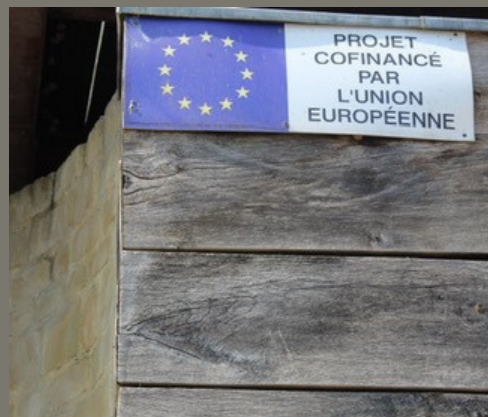 PROJET
COFINANCÉ
PAR
L'UNION
EUROPÉENNE